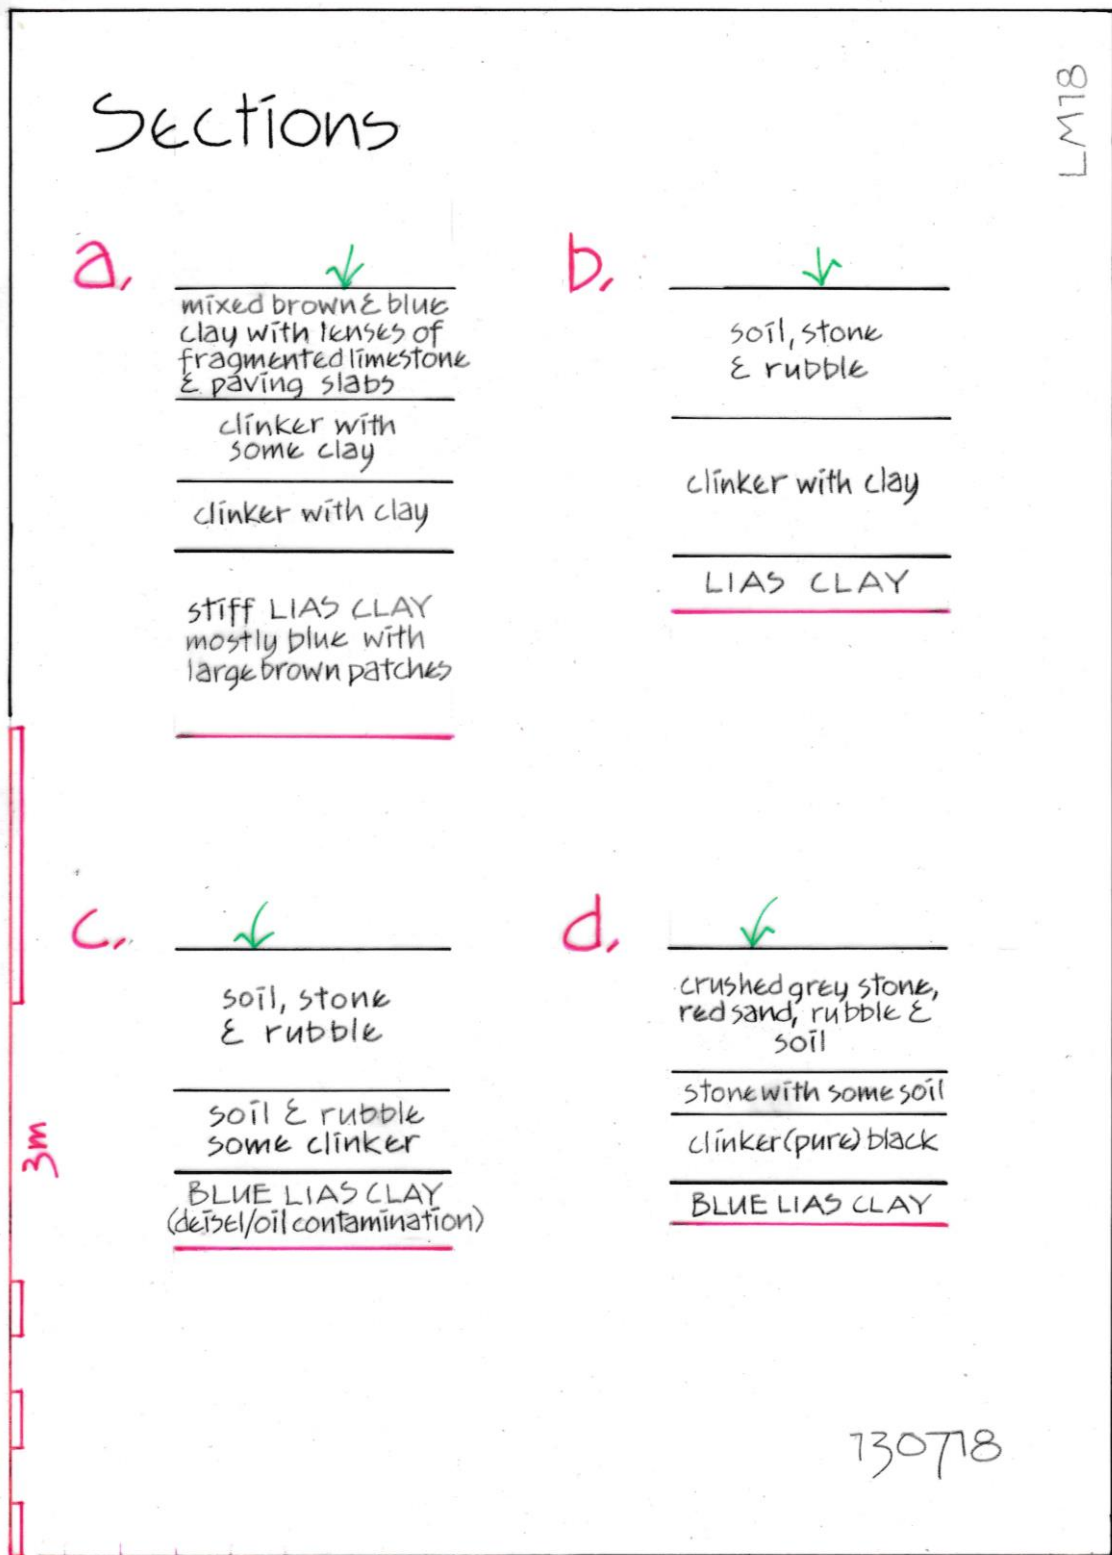 Sections
LM18
a.
mixed brown & blue
clay with lenses of
fragmented limestone
& paving slabs
clinker with
some clay
clinker with clay
stiff LIAS CLAY
mostly blue with
large brown patches
b.
soil, stone
& rubble
clinker with clay
LIAS CLAY
c.
soil, stone
& rubble
soil & rubble
some clinker
BLUE LIAS CLAY
(deisel/oil contamination)
d.
crushed grey stone,
red sand, rubble &
soil
stone with some soil
clinker (pure) black
BLUE LIAS CLAY
3m
130718